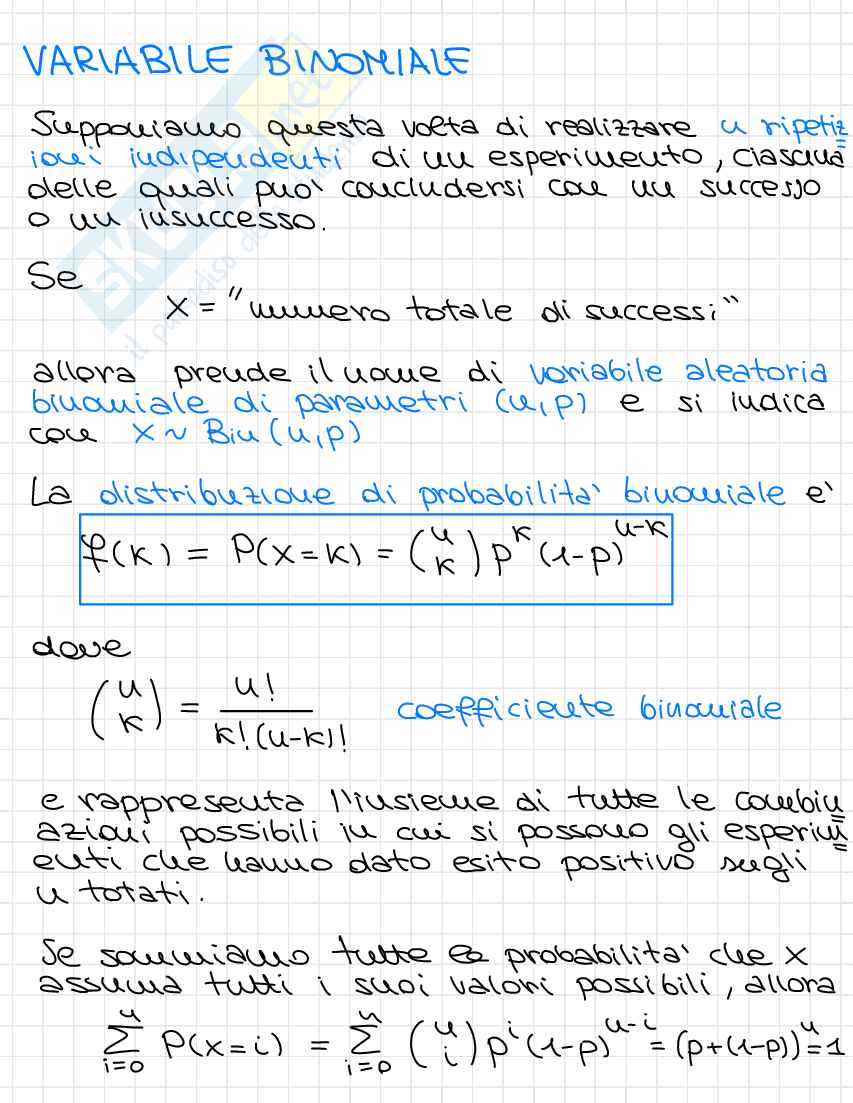 VARIABILE BINOMIALE
Supponiamo questa volta di realizzare n ripetiz
ioni indipendenti di un esperimento, ciascuna
delle quali può concludersi con un successo
o un insuccesso.
Se
X = "numero totale di successi"
allora prende il nome di variabile aleatoria
binomiale di parametri (n,p) e si indica
con X ~ Bin(n,p)
La distribuzione di probabilità binomiale è
φ(k) = P(X=k) = (n k) p^k (1-p)^{n-k}
dove
(n k) = n! / k!(n-k)! coefficiente binomiale
e rappresenta l'insieme di tutte le combin
azioni possibili in cui si possono gli esperim
enti che hanno dato esito positivo sugli
n totati.
Se sommiamo tutte le probabilità che X
assuma tutti i suoi valori possibili, allora
∑_{i=0}^{n} P(X=i) = ∑_{i=0}^{n} (n i) p^i (1-p)^{n-i} = (p+(1-p))^n = 1
SKUOLA.net
il paradiso dello